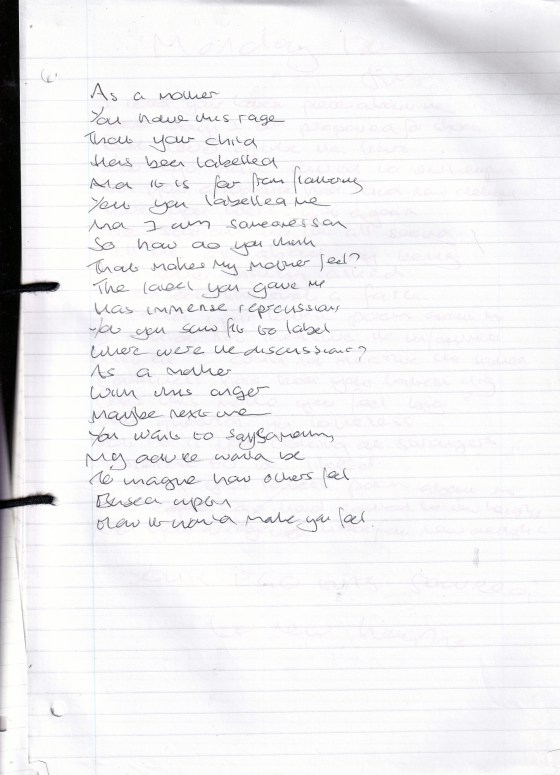 As a mother
You have this rage
That your child
Has been labelled
And it is far from flattering
Yet you labelled me
And I am someones son
So how do you think
That makes my mother feel?
The label you gave me
Has immense repercussions
Yet you saw fit to label
Where were the discussions?
As a mother
With this anger
Maybe next time
You want to say something
My advice would be
To imagine how others feel
Based upon
How it would make you feel.